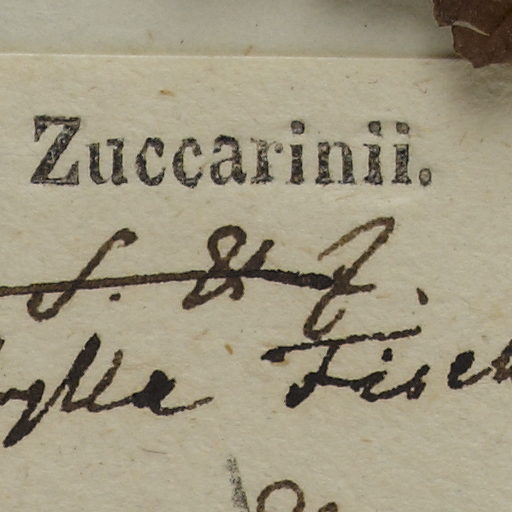 Zuccarinii.
S. & Z.
ylla Fisch